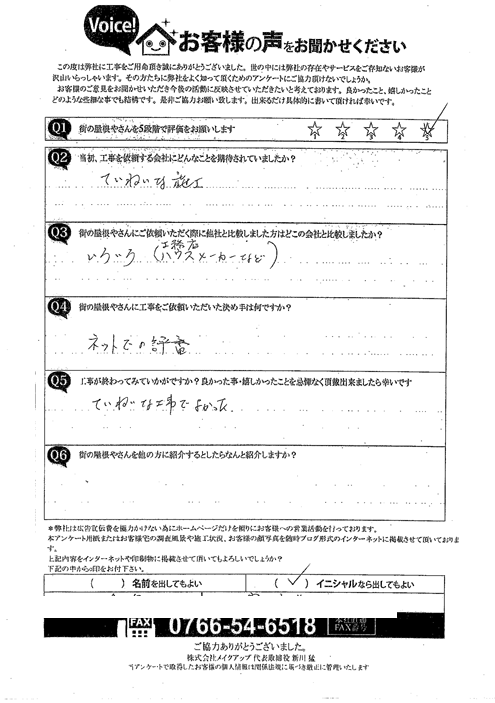 Voice!
お客様の声をお聞かせください
この度は弊社に工事をご用命頂き誠にありがとうございました。世の中には弊社の存在やサービスをご存知ないお客様が
沢山いらっしゃいます。その方たちに弊社をよく知って頂くためのアンケートにご協力頂けないでしょうか。
お客様のご意見をお聞かせいただき今後の活動に反映させていただきたいと考えております。良かったこと、嬉しかったこと
どのような些細な事でも結構です。是非ご協力お願い致します。出来るだけ具体的に書いて頂ければ幸いです。
Q1 街の屋根やさんを5段階で評価をお願いします
1 2 3 4 5
Q2 当初、工事を依頼する会社にどんなことを期待されていましたか?
ていねいな施工
Q3 街の屋根やさんにご依頼いただく際に他社と比較しました方はどこの会社と比較しましたか?
いろいろ(工務店 ハウスメーカーなど)
Q4 街の屋根やさんに工事をご依頼いただいた決め手は何ですか?
ネットでの評番
Q5 工事が終わってみていかがですか?良かった事・嬉しかったことを忌憚なく頂戴出来ましたら幸いです
ていねいな工事でよかった
Q6 街の屋根やさんを他の方に紹介するとしたらなんと紹介しますか?
*弊社は広告宣伝費を極力かけない為にホームページだけを頼りにお客様への営業活動を行っております。
本アンケート用紙またはお客様宅の調査風景や施工状況、お客様の顔写真を随時ブログ形式のインターネットに掲載させて頂いております。
上記内容をインターネットや印刷物に掲載させて頂いてもよろしいでしょうか?
下記の中から○印をお付下さい。
( ) 名前を出してもよい
(✓) イニシャルなら出してもよい
FAX 0766-54-6518 本社直通FAX番号
ご協力ありがとうございました。
株式会社メイクアップ 代表取締役 新川 猛
*(アンケートで取得したお客様の個人情報は関係法規に基づき厳正に管理いたします